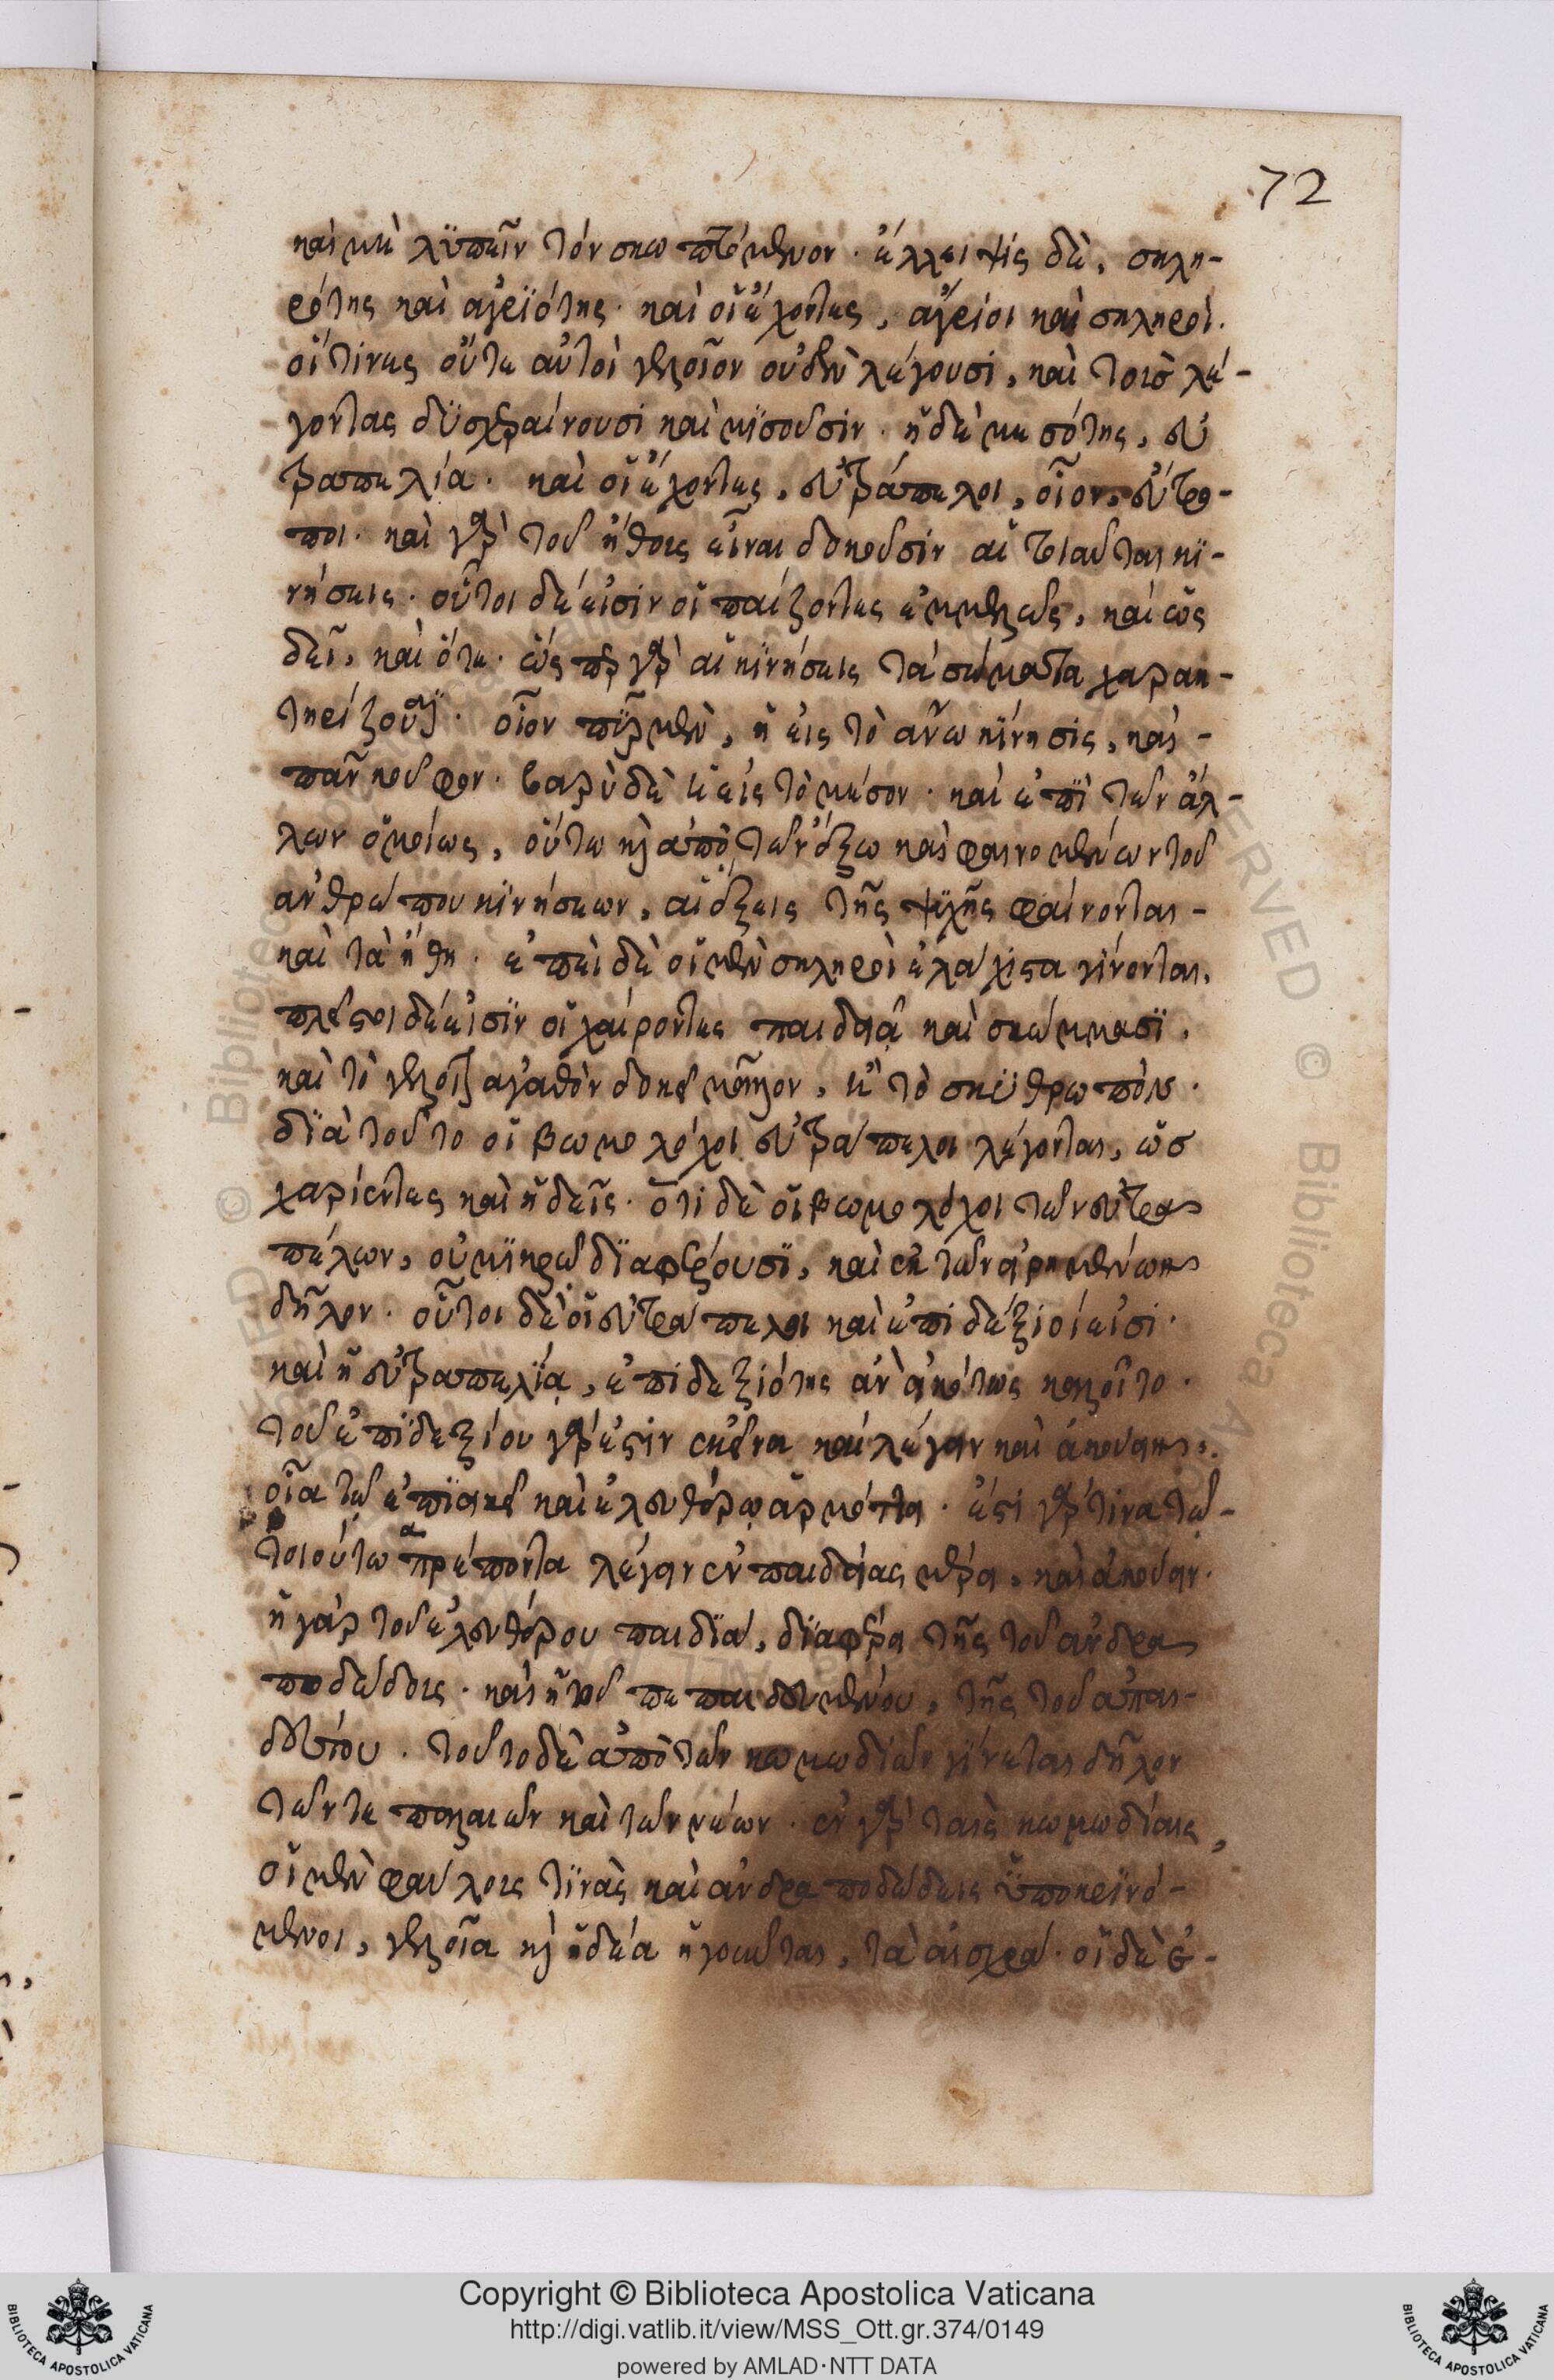 72
καὶ μὴ λϋπεῖν τὸν σκωπτόμενον. ἔλλειψίς δὲ, σκλη-
ρότης καὶ ἀγρϊότης. καὶ οἱ ἔχοντες, ἄγριοι καὶ σκληροὶ.
οἵ τινες οὔτε αὐτοὶ γελοῖον οὐδὲν λέγουσι, καὶ τοὺσ λέ-
γοντας δϋσχεραίνουσι καὶ μϊσοῦσιν. ἡ δὲ μεσότης, εὐ
τραπελία. καὶ οἱ ἔχοντες, εὐτράπελοι, οἷον, εὔτρο-
ποι. καὶ γὰρ τοῦ ἤθους εἶναι δοκοῦσιν αἱ τοιαῦται κϊ-
νήσεις. οὗτοι δέ εἰσιν οἱ παίζοντες ἐμμελῶς, καὶ ὡς
δεῖ, καὶ ὅτε. ὥς περ γὰρ αἱ κϊνήσεις τὰ σώματα χαρακ-
τηρίζουσϊ. οἷον πῦρ μὲν, ἡ εἰς τὸ ἄνω κίνησις, καὶ -
πᾶν κοῦφον. βαρὺ δὲ ἡ εἰς τὸ μέσον. καὶ ἐπὶ τῶν ἄλ-
λων ὁμοίως, οὕτω καὶ ἀπὸ τῶν ἔξω καὶ φαινομένων τοῦ
ἀνθρώπου κϊνήσεων, αἱ ἕξεις τῆς ψυχῆς φαίνονται -
καὶ τὰ ἤθη. ἐπεὶ δὲ οἱ μὲν σκληροὶ ἐλάχιστα γίνονται,
πλεῖστοι δέ εἰσϊν οἱ χαίροντες παιδιᾷ καὶ σκώμμασϊ.
καὶ τὸ γελοῖον ἀγαθὸν δοκεῖ μᾶλλον, ἢ τὸ σκϋθρωπὸν.
δϊὰ τοῦτο οἱ βωμολόχοι εὐτράπελοι λέγονται, ὡσ
χαρίεντες καὶ ἡδεῖς. ὅτι δὲ οἱ βωμολόχοι τῶν εὐτρα
πέλων, οὐ μϊκρῶ δϊαφέρουσϊ, καὶ ἐκ τῶν εἰρημένων
δῆλον. οὗτοι δὲ οἱ εὐτράπελοι καὶ ἐπιδέξιοί εἰσι.
καὶ ἡ εὐτραπελϊα, ἐπιδεξιότης ἂν εἰκότως καλοῖτο.
τοῦ ἐπϊδεξίου γάρ ἐστιν ἐκεῖνα καὶ λέγειν καὶ ἀκούειν.
οἷα τῶ ἐπϊεικεῖ καὶ ἐλευθέρῳ ἁρμόττει. ἔστι γάρ τινα τῶ -
τοιούτω ἃ πρέποντα λέγειν ἐν παιδιᾶς μέρει, καὶ ἀκούειν.
ἡ γὰρ τοῦ ἐλευθέρου παιδϊὰ, δϊαφέρει τῆς τοῦ ἀνδρα
ποδώδους. καὶ ἡ τοῦ πεπαιδευμένου, τῆς τοῦ ἀπαι-
δεύτου. τοῦτο δὲ ἀπὸ τῶν κωμωδιῶν γίνεται δῆλον
τῶν τε παλαιῶν καὶ τῶν νέων. ἐν γὰρ ταῖς κωμωδίαις,
οἱ μὲν φαύλους τϊνὰς καὶ ἀνδραποδώδεις ὑποκρϊνό-
μενοι, γελοῖα καὶ ἡδέα ἡγοῦνται, τὰ αἰσχρά. οἱ δὲ ἐ-
Copyright © Biblioteca Apostolica Vaticana
http://digi.vatlib.it/view/MSS_Ott.gr.374/0149
powered by AMLAD·NTT DATA
BIBLIOTECA APOSTOLICA VATICANA
BIBLIOTECA APOSTOLICA VATICANA